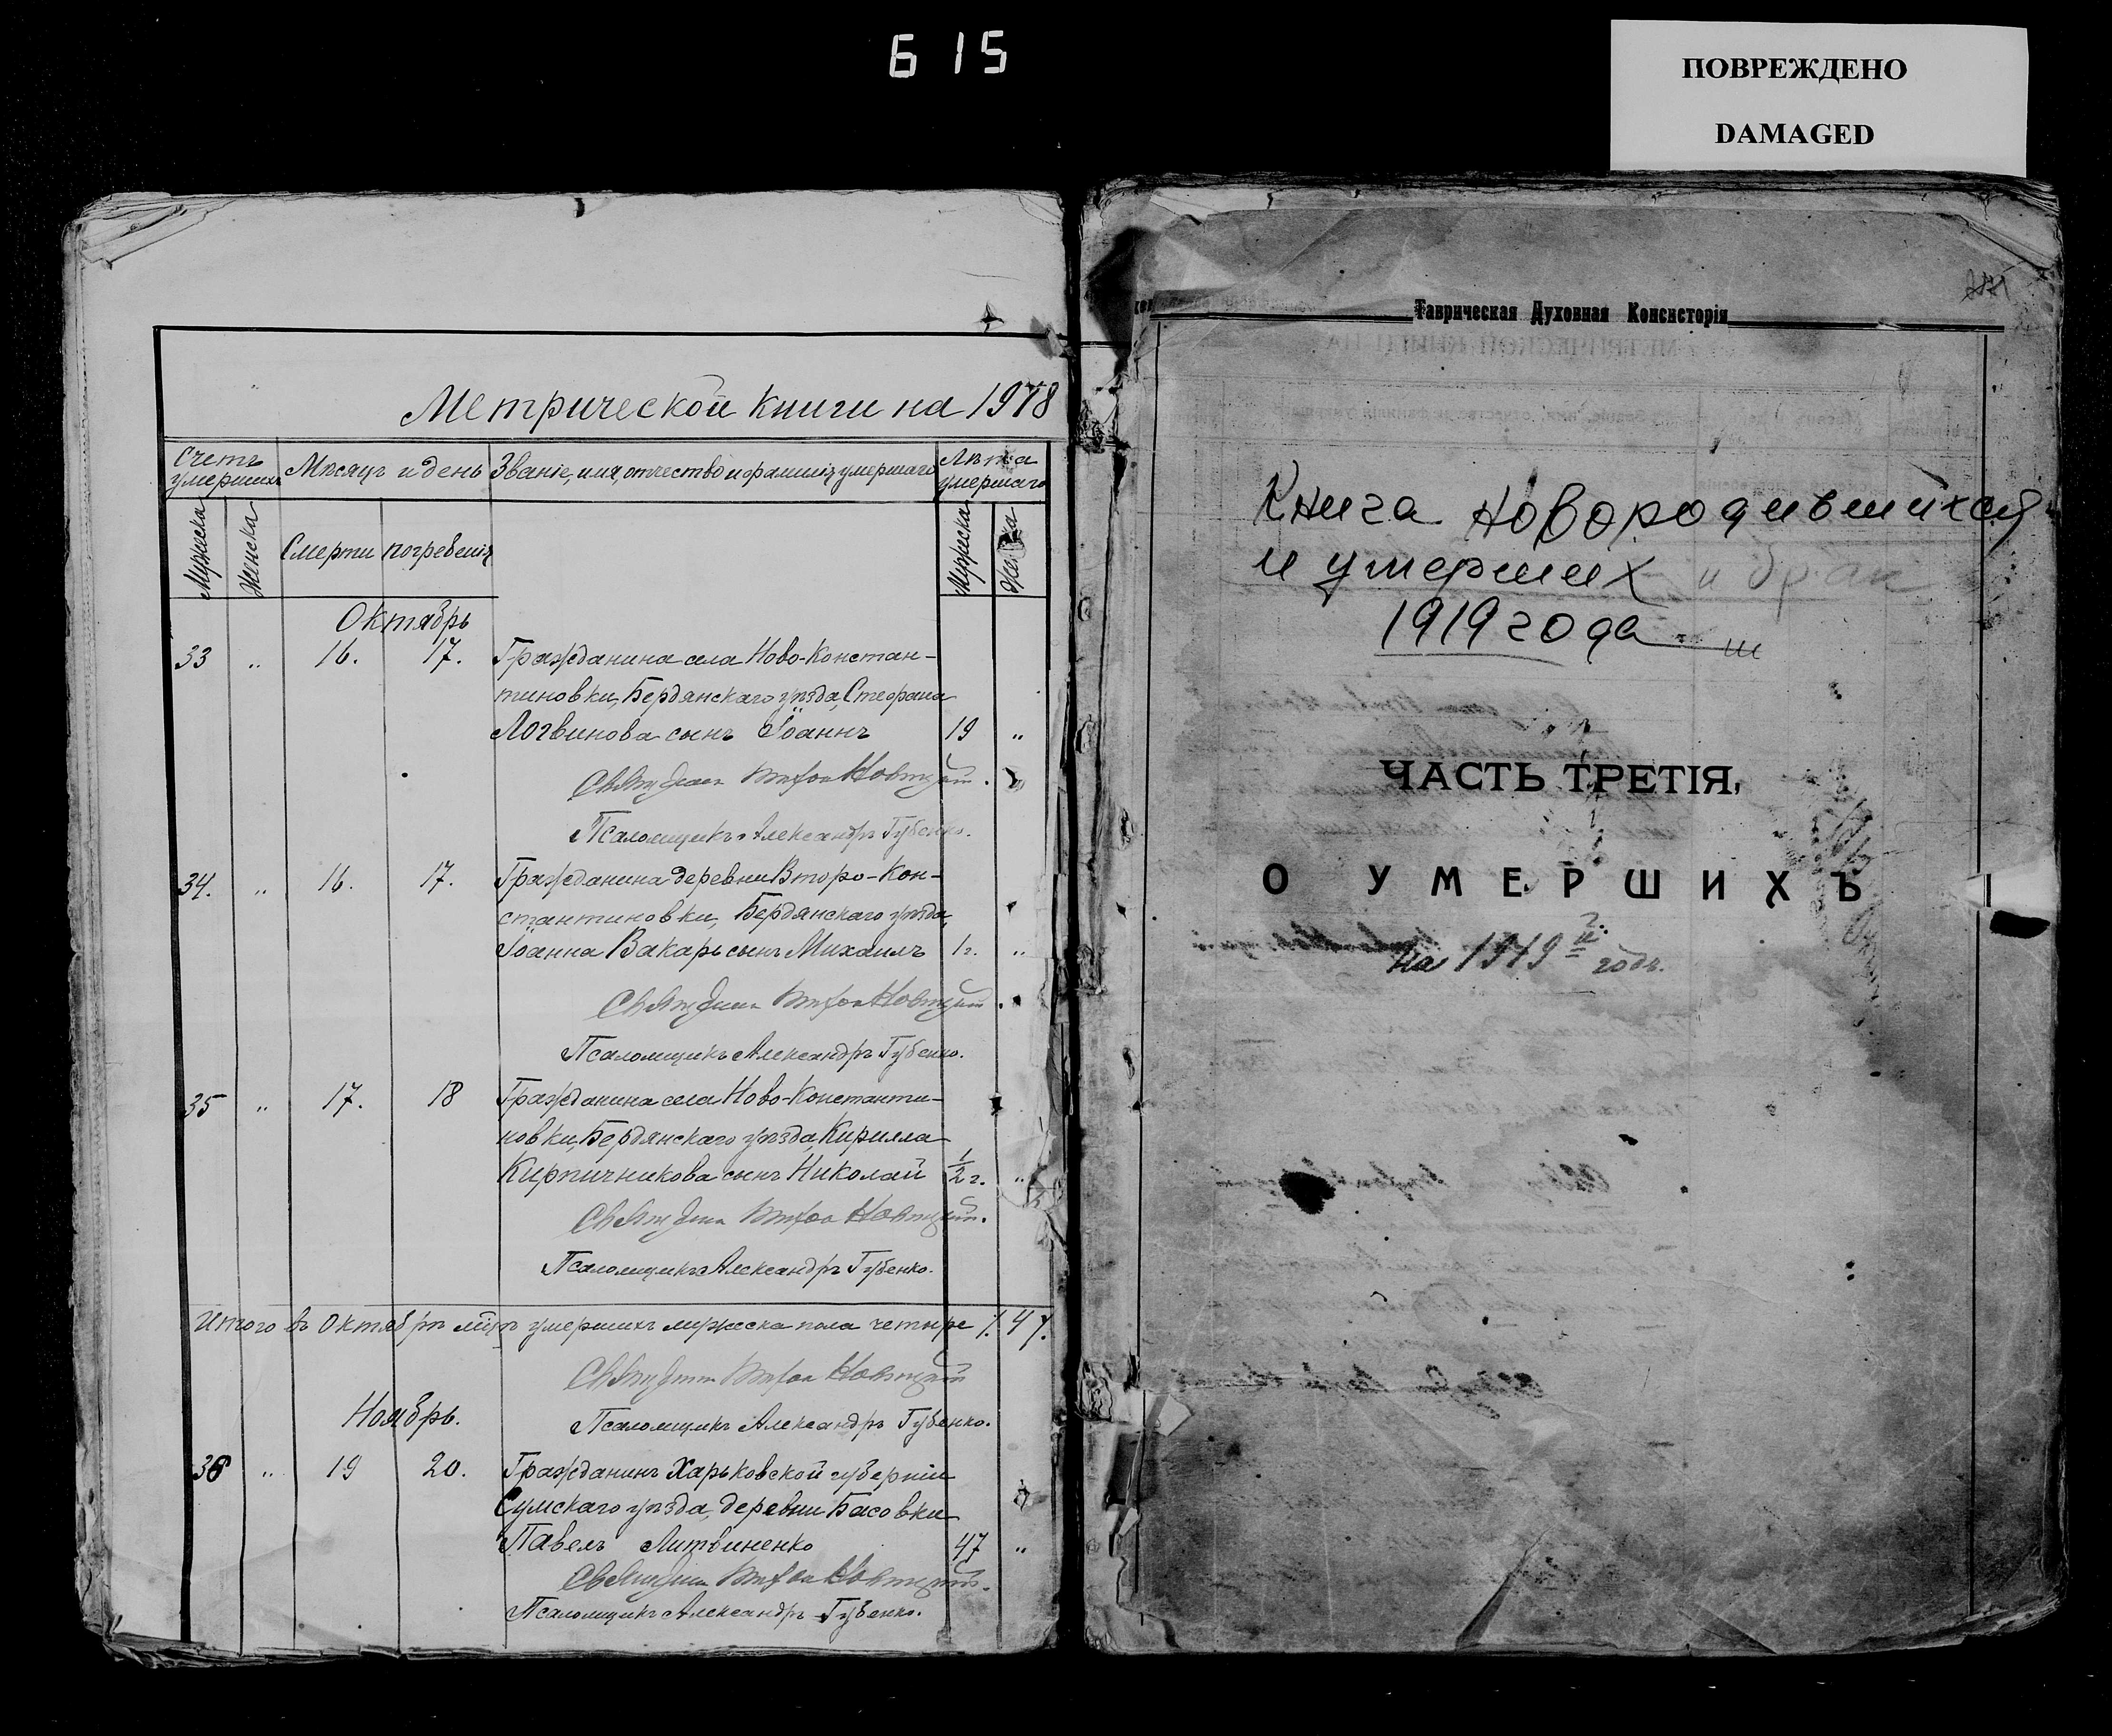 615
ПОВРЕЖДЕНО
DAMAGED
Метрической книги на 1918
Счетъ умершихъ
Мѣсяцъ и день
Званіе, имя, отчество и фамилія умершаго
Лѣта умершаго
Мужска
Женска
Смерти
погребенія
Мужска
Женска
Октябрь
33 " 16. 17. Гражданина села Ново-Констан-
тиновки, Бердянскаго уѣзда, Стефана
Логвинова сынъ Іоаннъ 19 "
Священникъ Новицкій.
Псаломщикъ Александръ Губенко.
34. " 16. 17. Гражданина деревни Второ-Кон-
стантиновки, Бердянскаго уѣзда,
Іоанна Вакарь сынъ Михаилъ 1г. "
Священникъ Новицкій.
Псаломщикъ Александръ Губенко.
35 " 17. 18 Гражданина села Ново-Константи-
новки, Бердянскаго уѣзда, Кирилла
Кирпичникова сынъ Николай 1/2 г. "
Священникъ Новицкій.
Псаломщикъ Александръ Губенко.
Итого въ Октябрѣ мѣсяцѣ умершихъ мужеска пола четыре /.4/.
Священникъ Новицкій
Псаломщикъ Александръ Губенко.
Ноябрь.
36 " 19 20. Гражданинъ Харьковской губерніи
Сумскаго уѣзда, деревни Басовки
Павелъ Литвиненко 47 "
Священникъ Новицкій.
Псаломщикъ Александръ Губенко.
Таврическая Духовная Консисторія
Книга новородившихся
и умерших и брак
1919 года
ЧАСТЬ ТРЕТІЯ,
О УМЕРШИХЪ
на 1919 годъ.